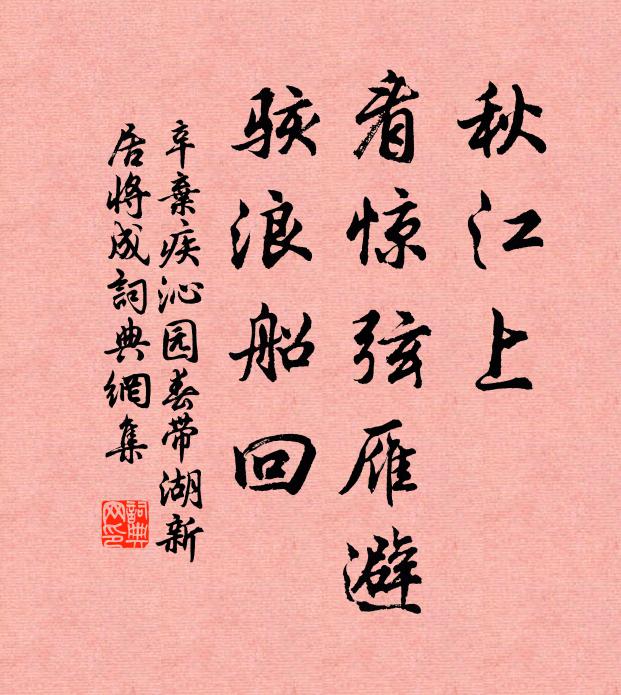 秋江上
看惊弦雁避
骇浪船回
辛棄疾沁园春带湖新
居将成詞典網集
詞典网印